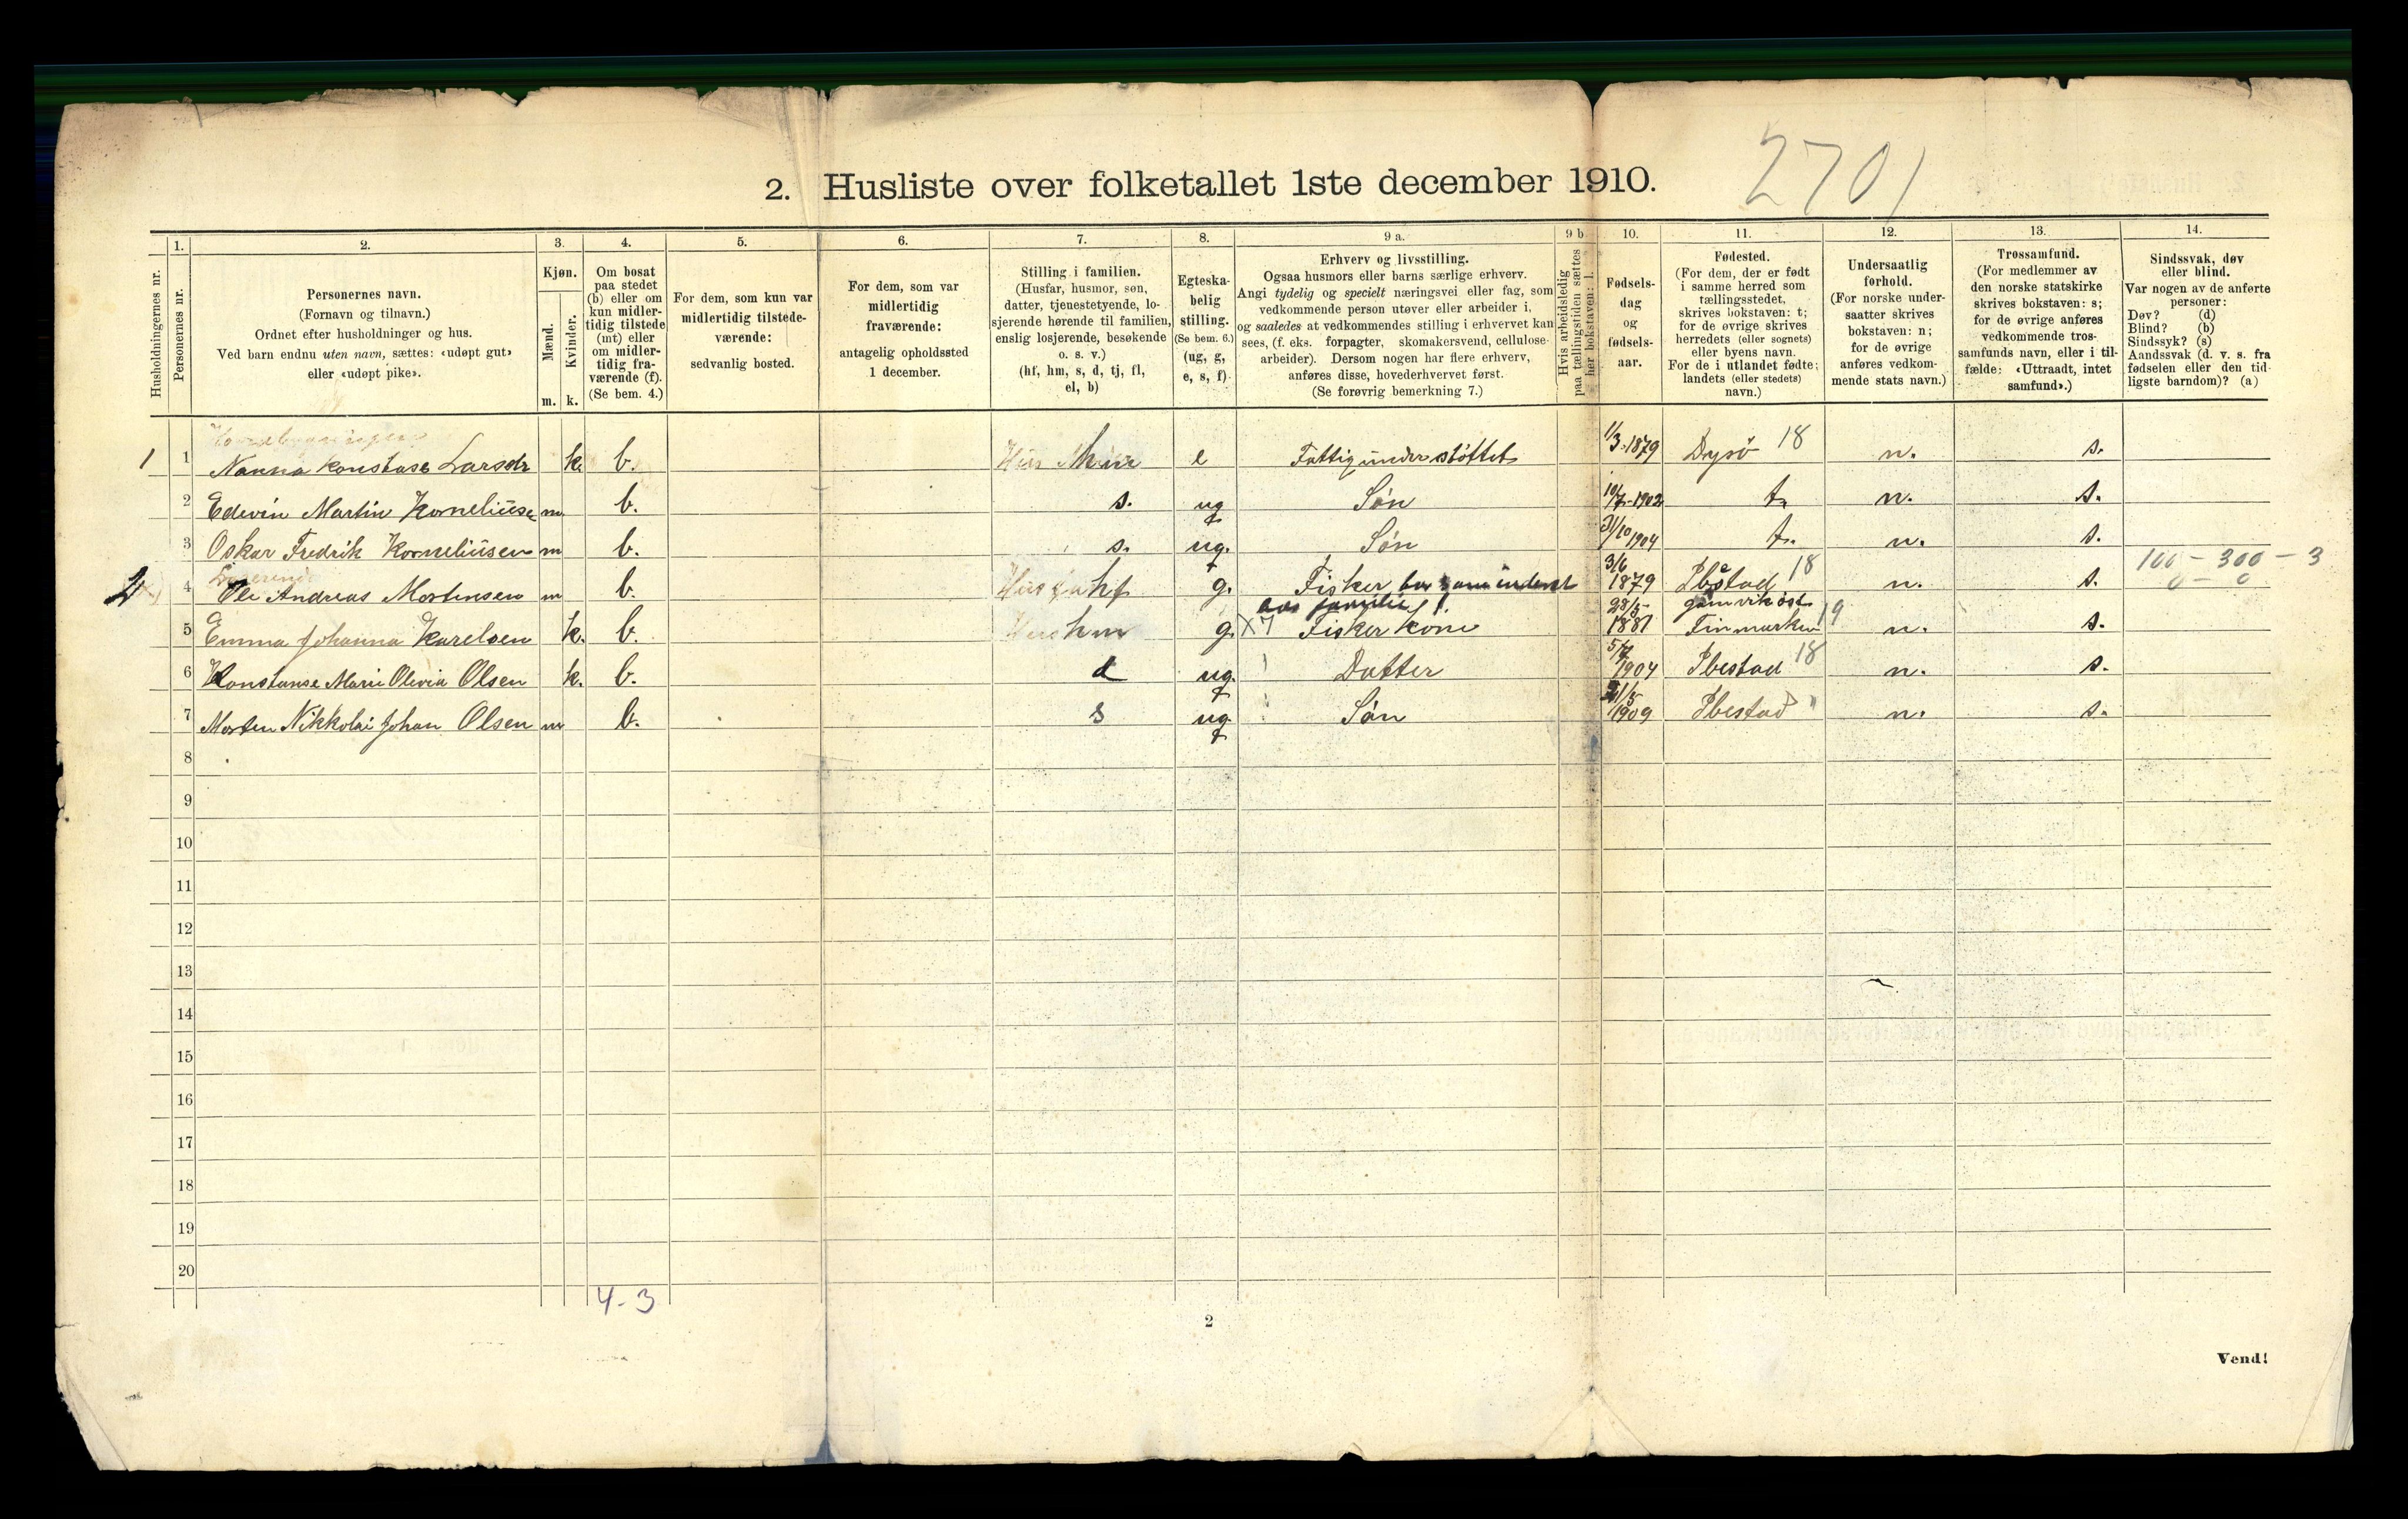 2701
2. Husliste over folketallet 1ste december 1910.
Husholdningernes nr.
1.
Personernes nr.
2.
Personernes navn.
(Fornavn og tilnavn.)
Ordnet efter husholdninger og hus.
Ved barn endnu uten navn, sættes: «udøpt gut»
eller «udøpt pike».
3.
Kjøn.
Mænd.
Kvinder.
m. k.
4.
Om bosat
paa stedet
(b) eller om
kun midler-
tidig tilstede
(mt) eller
om midler-
tidig fra-
værende (f).
(Se bem. 4.)
5.
For dem, som kun var
midlertidig tilstede-
værende:
sedvanlig bosted.
6.
For dem, som var
midlertidig
fraværende:
antagelig opholdssted
1 december.
7.
Stilling i familien.
(Husfar, husmor, søn,
datter, tjenestetyende, lo-
sjerende hørende til familien,
enslig losjerende, besøkende
o. s. v.)
(hf, hm, s, d, tj, fl,
el, b)
8.
Egteska-
belig
stilling.
(Se bem. 6.)
(ug, g,
e, s, f)
9 a.
Erhverv og livsstilling.
Ogsaa husmors eller barns særlige erhverv.
Angi tydelig og specielt næringsvei eller fag, som
vedkommende person utøver eller arbeider i,
og saaledes at vedkommendes stilling i erhvervet kan
sees, (f. eks. forpagter, skomakersvend, cellulose-
arbeider). Dersom nogen har flere erhverv,
anføres disse, hovederhvervet først.
(Se forøvrig bemerkning 7.)
9 b
Hvis arbeidsledig
paa tællingstiden sættes
her bokstaven: l.
10.
Fødsels-
dag
og
fødsels-
aar.
11.
Fødested.
(For dem, der er født
i samme herred som
tællingsstedet,
skrives bokstaven: t;
for de øvrige skrives
herredets (eller sognets)
eller byens navn.
For de i utlandet fødte:
landets (eller stedets)
navn.)
12.
Undersaatlig
forhold.
(For norske under-
saatter skrives
bokstaven: n;
for de øvrige
anføres vedkom-
mende stats navn.)
13.
Trossamfund.
(For medlemmer av
den norske statskirke
skrives bokstaven: s;
for de øvrige anføres
vedkommende tros-
samfunds navn, eller i til-
fælde: «Uttraadt, intet
samfund».)
14.
Sindssvak, døv
eller blind.
Var nogen av de anførte
personer:
Døv? (d)
Blind? (b)
Sindssyk? (s)
Aandssvak (d. v. s. fra
fødselen eller den tid-
ligste barndom)? (a)
1 1 Nanna Konstase Larsdr k. b. e Fattigunderstøttet 1/3-1879 Dyrö 18 n. s.
2 Edevin Martin Korneliusen m. b. s. ug Søn 10/7-1902 t. n. s.
3 Oskar Fredrik Korneliusen m b. s. ug. Søn 31/10 1904 t. n. s.
100 - 300 - 3
0 - 0
2 4 Ole Andreas Mortensen m b. hf g. Fisker 3/6 1879 Ibestad 18 n. s.
5 Emma Johanna Karelsen k. b. hm g. X7 Fisker kone 28/5-1881 Gamvik öst Finmarken 19 n. s.
6 Konstanse Marie Olivia Olsen k. b. d ug. Datter 5/7 1904 Ibestad 18 n. s.
7 Morten Nikkolai Johan Olsen m b. s ug. Søn 21/5 1909 Ibestad " n. s.
8
9
10
11
12
13
14
15
16
17
18
19
20
4-3
2
Vend!